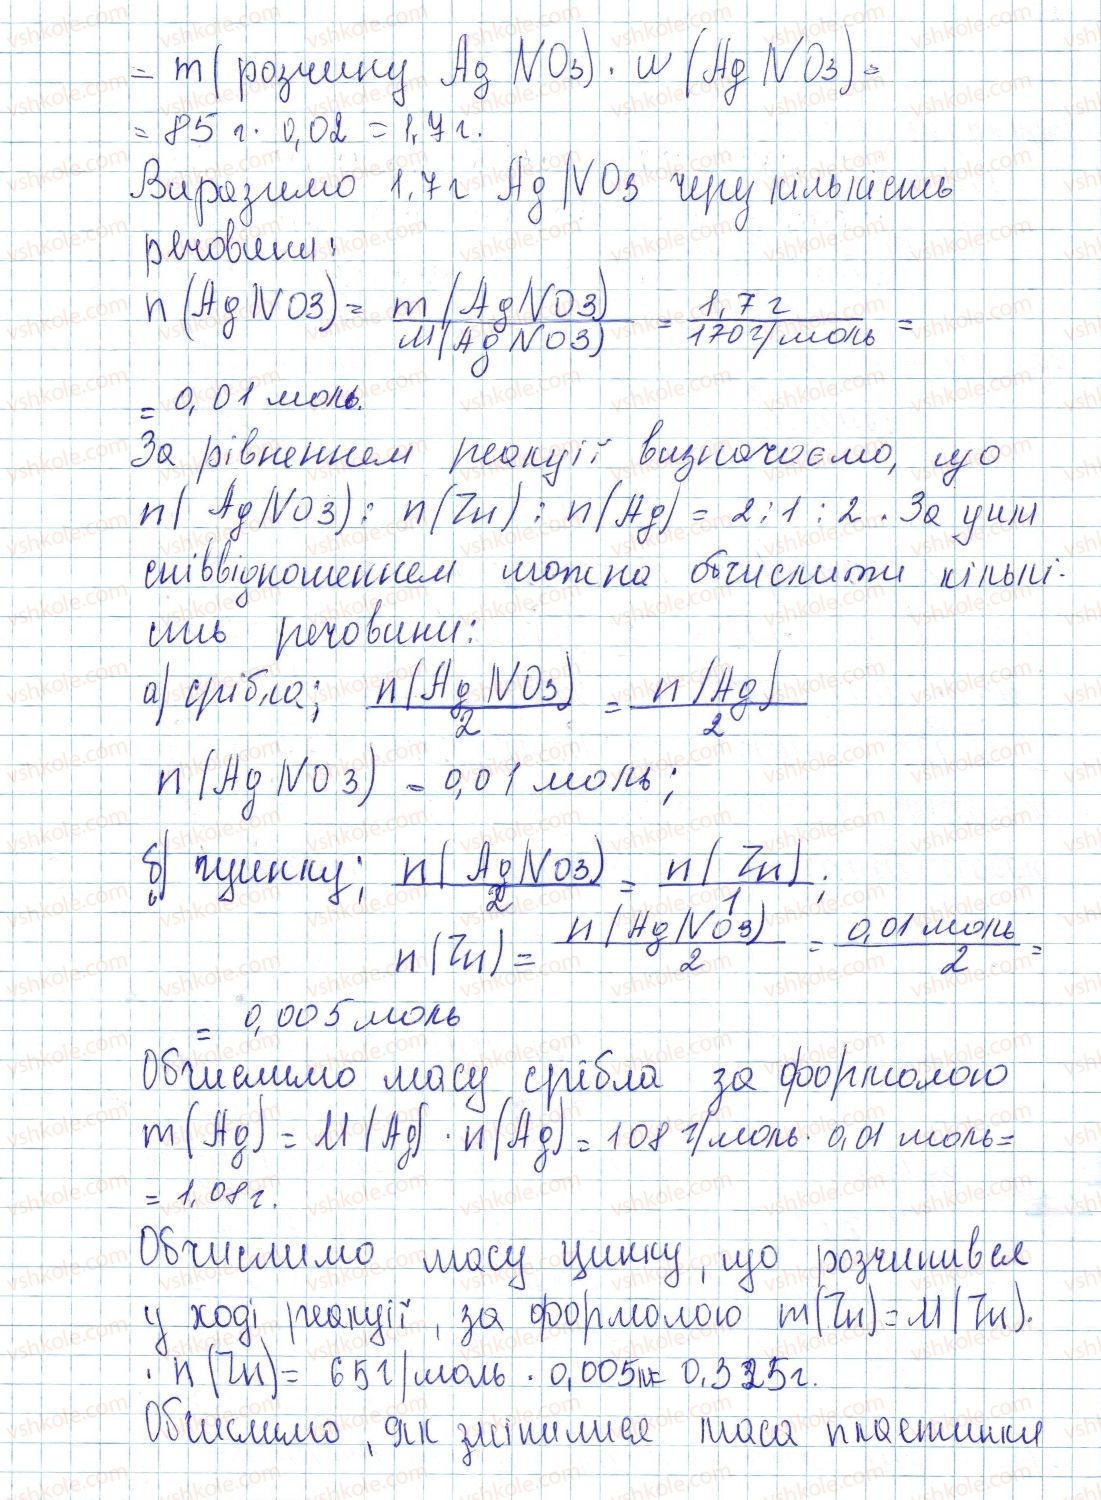 = m(розчину AgNO3) · w(AgNO3) =
= 85 г · 0,02 = 1,7 г.
Виразимо 1,7 г AgNO3 через кількість
речовини:
n(AgNO3) = m(AgNO3) / M(AgNO3) = 1,7 г / 170 г/моль =
= 0,01 моль.
За рівненнем реакції визначаємо, що
n(AgNO3) : n(Zn) : n(Ag) = 2 : 1 : 2. За цим
співвідношеннем можна обчислити кількі-
сть речовини:
а) срібла; n(AgNO3) / 2 = n(Ag) / 2
n(AgNO3) = 0,01 моль;
б) цинку; n(AgNO3) / 2 = n(Zn) / 1;
n(Zn) = n(AgNO3) / 2 = 0,01 моль / 2 =
= 0,005 моль
Обчислимо масу срібла за формолою
m(Ag) = M(Ag) · n(Ag) = 108 г/моль · 0,01 моль =
= 1,08 г.
Обчислимо масу цинку, що розчинився
у ході реакції, за формолою m(Zn) = M(Zn) ·
· n(Zn) = 65 г/моль · 0,005 = 0,325 г.
Обчислимо, як змінилися маса пластинки